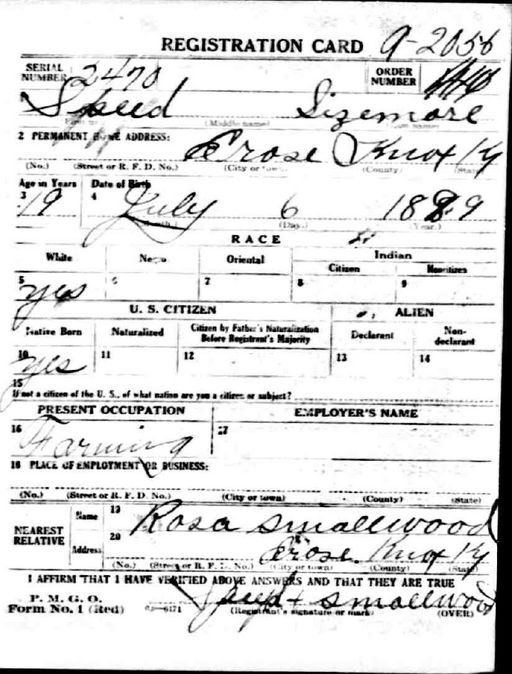 REGISTRATION CARD 9-2056
SERIAL NUMBER 2470 ORDER NUMBER
1 Speed Sizemore
(Middle name)
2 PERMANENT HOME ADDRESS: Erose Knox Ky
(No.) (Street or R. F. D. No.) (City or town) (County) (State)
Age in Years Date of Birth
3 19 4 July 6 1899
(Day.) (Year.)
RACE
White Negro Oriental Indian
Citizen
5 yes 6 7 8 9
U. S. CITIZEN ALIEN
Native Born Naturalized Citizen by Father's Naturalization Before Registrant's Majority Declarant Non-declarant
10 yes 11 12 13 14
15
If not a citizen of the U. S., of what nation are you a citizen or subject?
PRESENT OCCUPATION EMPLOYER'S NAME
16 Farming 17
18 PLACE OF EMPLOYMENT OR BUSINESS:
(No.) (Street or R. F. D. No.) (City or town) (County) (State)
NEAREST RELATIVE Name 19 Rosa Smallwood
Address 20 Erose Knox Ky
(No.) (Street or R. F. D. No.) (City or town) (County) (State)
I AFFIRM THAT I HAVE VERIFIED ABOVE ANSWERS AND THAT THEY ARE TRUE
P. M. G. O.
Form No. 1 (Red) 03—6171 smallwood
(Registrant's signature or mark) (OVER)